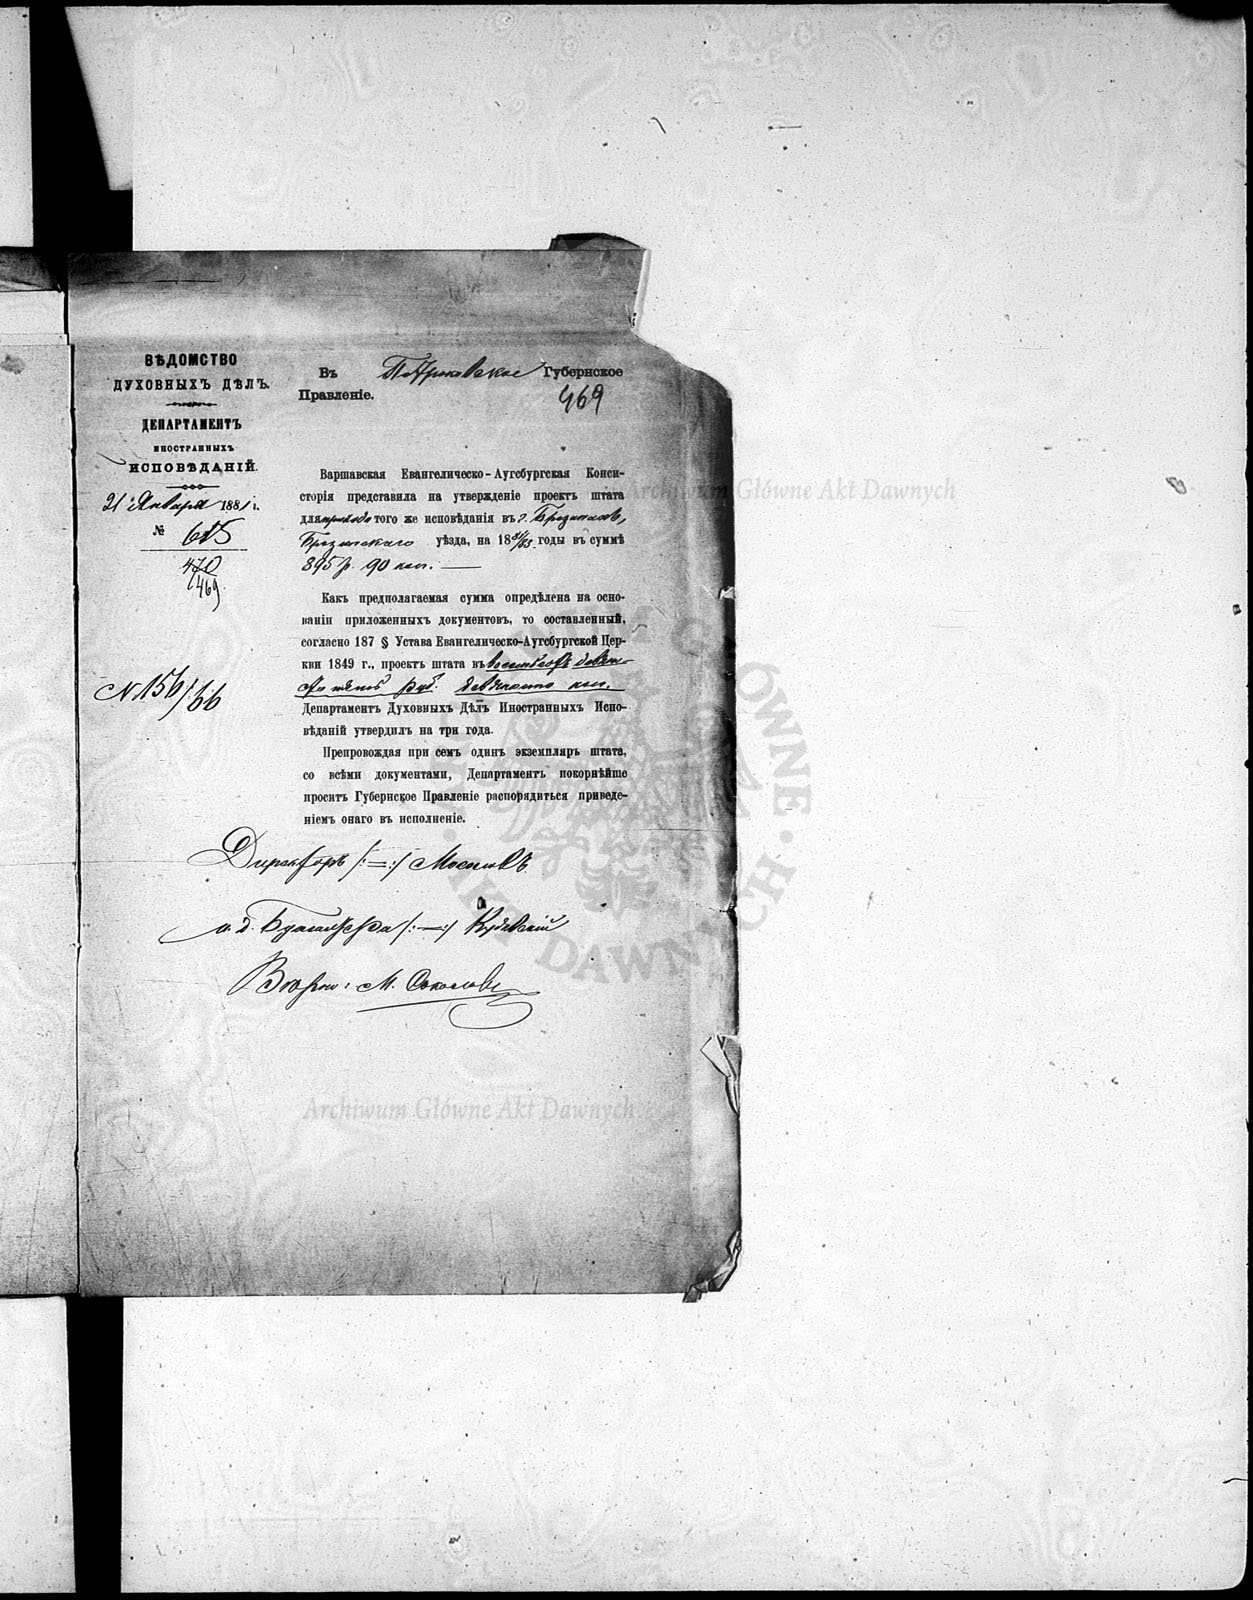 ВѢДОМСТВО
ДУХОВНЫХЪ ДѢЛЪ.
ДЕПАРТАМЕНТЪ
ИНОСТРАННЫХЪ
ИСПОВѢДАНІЙ.
21 Января 1881 г.
№ 615
470
469
N 156/66
Въ Петроковское Губернское
Правленіе.
469
Варшавская Евангелическо-Аугсбургская Конси-
сторія представила на утвержденіе проектъ штата
для прихода того же исповѣданія въ г. Брезинахъ,
Брезинскаго уѣзда, на 1881/83 годы въ суммѣ
895 р. 90 коп.
Какъ предполагаемая сумма опредѣлена на осно-
ваніи приложенныхъ документовъ, то составленный,
согласно 187 § Устава Евангелическо-Аугсбургской Цер-
кви 1849 г., проектъ штата въ восемьсотъ девяно-
сто пять руб. девяносто коп.
Департаментъ Духовныхъ Дѣлъ Иностранныхъ Испо-
вѣданій утвердилъ на три года.
Препровождая при семъ одинъ экземпляръ штата,
со всѣми документами, Департаментъ покорнѣйше
проситъ Губернское Правленіе распорядиться приведе-
ніемъ онаго въ исполненіе.
Директоръ /:=:/ Мосоловъ
и. д. Бухгалтера /:=:/
Вѣрно: М. Соколовъ
Archiwum Główne Akt Dawnych
Archiwum Główne Akt Dawnych
ARCHIWUM GŁÓWNE AKT DAWNYCH